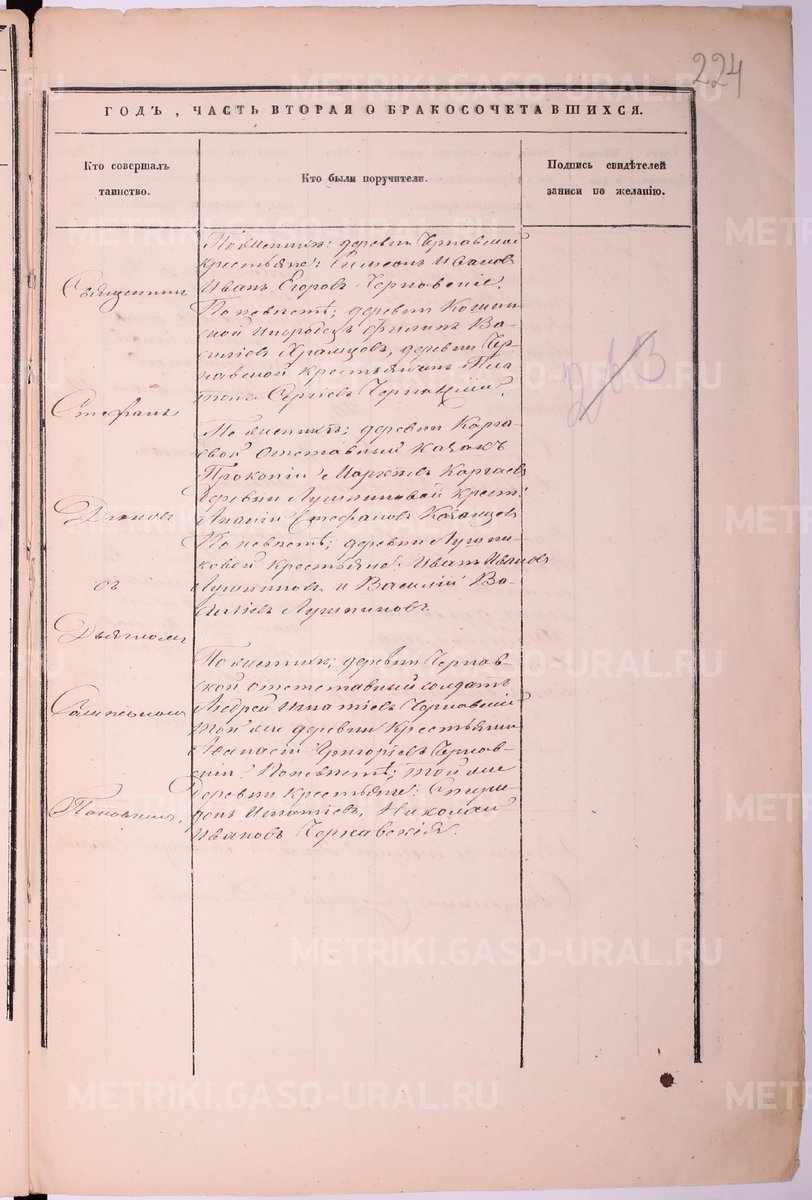 224
ГОДЪ, ЧАСТЬ ВТОРАЯ О БРАКОСОЧЕТАВШИХСЯ.
Кто совершалъ
таинство.
Кто были поручители.
Подпись свидѣтелей
записи по желанію.
Священникъ
Стефанъ
съ
Дьячкомъ
По женихѣ: деревни Чернавской
крестьяне: Симеонъ Ивановъ
Иванъ Егоровъ Чернавскіе.
По невѣстѣ; деревни
Филипъ Ва-
сильевъ Храмцовъ, деревни Чер-
навской крестьянинъ Пла-
тонъ Сергіевъ Чернавскій.
По женихѣ; деревни Карга-
вой отставный казакъ
Прокопій Каргаевъ
деревни Лушниковой крест:
Ананій Стефановъ Казанцевъ
По невѣстѣ; деревни Лушни-
ковой крестьяне: Иванъ Ивановъ
Лушниковъ и Василій Ва-
сильевъ Лушниковъ.
По женихѣ; деревни Чернав-
ской отставный солдатъ
Андрей Игнатіевъ Чернавскій
той же деревни крестьянинъ
Афанасій Григоріевъ Чернав-
скій. По невѣстѣ; той же
деревни крестьяне: Спири-
донъ Игнатіевъ, Николай
Ивановъ Чернавскія.
METRIKI.GASO-URAL.RU